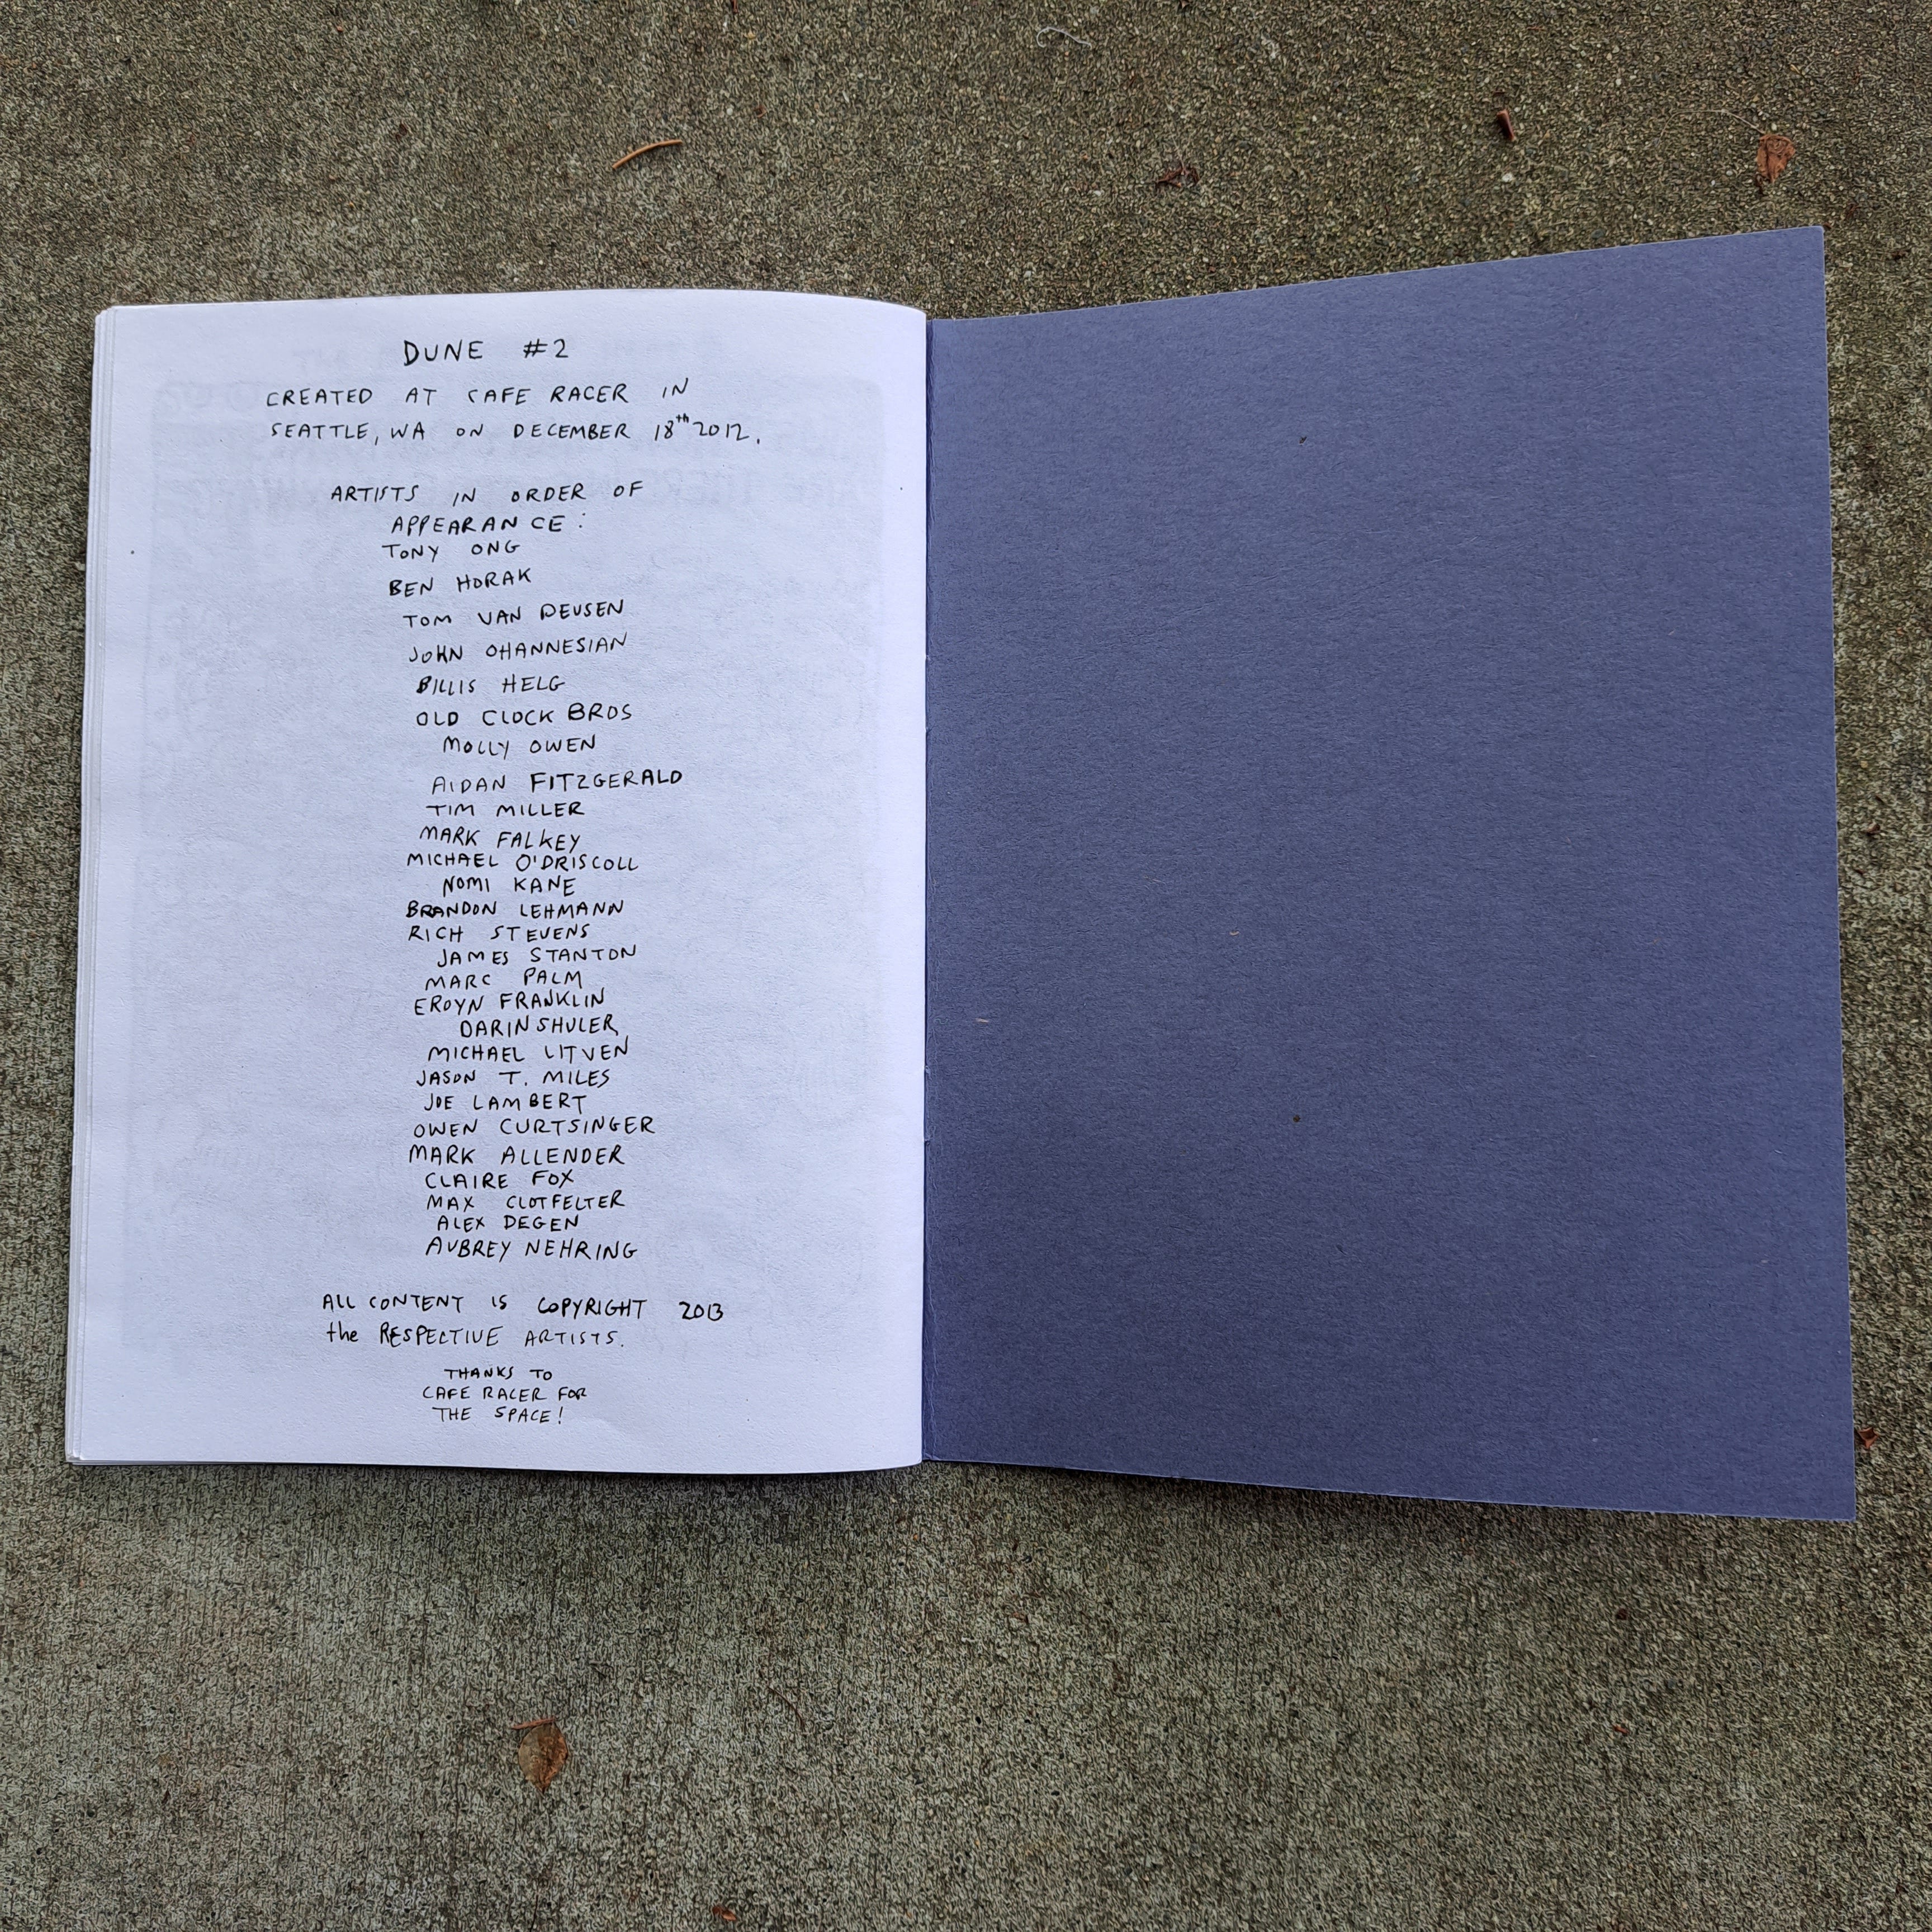 DUNE #2
CREATED AT CAFE RACER IN
SEATTLE, WA ON DECEMBER 18th 2012.
ARTISTS IN ORDER OF
APPEARANCE:
TONY ONG
BEN HORAK
TOM VAN DEUSEN
JOHN OHANNESIAN
BILLIS HELG
OLD CLOCK BROS
MOLLY OWEN
AIDAN FITZGERALD
TIM MILLER
MARK FALKEY
MICHAEL O'DRISCOLL
NOMI KANE
BRANDON LEHMANN
RICH STEVENS
JAMES STANTON
MARC PALM
EROYN FRANKLIN
DARIN SHULER
MICHAEL LITVEN
JASON T. MILES
JOE LAMBERT
OWEN CURTSINGER
MARK ALLENDER
CLAIRE FOX
MAX CLOTFELTER
ALEX DEGEN
AUBREY NEHRING
ALL CONTENT IS COPYRIGHT 2013
the RESPECTIVE ARTISTS.
THANKS TO
CAFE RACER FOR
THE SPACE!